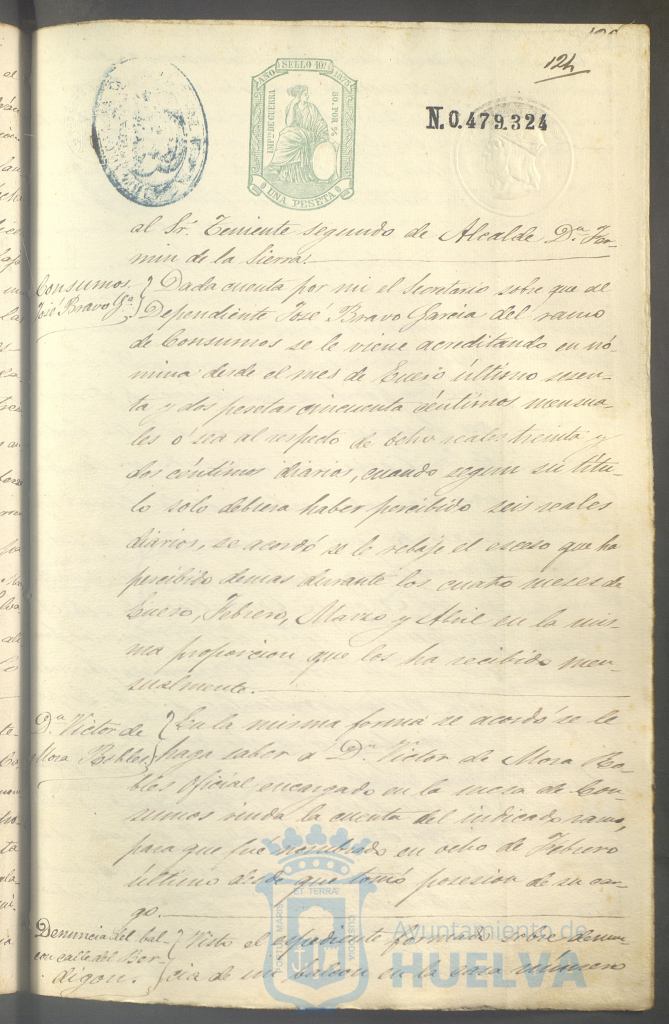 124
AÑO SELLO 10º 1878
IMPTO DE GUERRA 50 POR %
UNA PESETA
N.0.479.324
al Sr. Teniente segundo de Alcalde Dn. Fer-
min de la Sierra.
Consumos.
José Bravo Ga.
Dada cuenta por mi el Secretario sobre que al
Dependiente José Bravo Garcia del ramo
de Consumos se le viene acreditando en nó-
mina desde el mes de Enero último sesen-
ta y dos pesetas cincuenta céntimos mensua-
les ó sea al respecto de ocho reales treinta y
dos céntimos diarios, cuando segun su títu-
lo solo debiera haber percibido seis reales
diarios, se acordó se le rebaje el esceso que ha
percibido demas durante los cuatro meses de
Enero, Febrero, Marzo y Abril en la mis-
ma proporcion que los ha recibido men-
sualmente.
Dn. Victor de
Mora Robles
En la misma forma se acordó se le
haga saber á Dn. Victor de Mora Ro-
bles Oficial encargado en la mesa de Con-
sumos rinda la cuenta del indicado ramo,
para que fué nombrado en ocho de Febrero
último desde que tomó posesion de su car-
go.
Denuncia del bal-
con calle del Bor-
digon.
Visto el expediente formado sobre denun-
cia de un balcon en la casa número
Ayuntamiento de
HUELVA